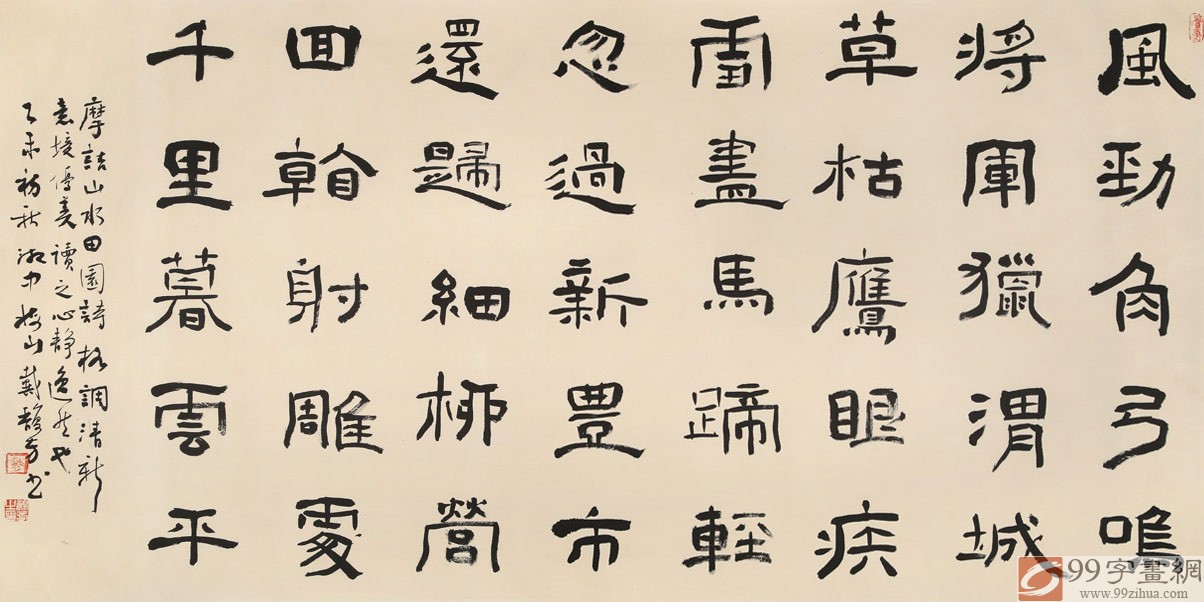 風勁角弓鳴
將軍獵渭城
草枯鷹眼疾
雪盡馬蹄輕
忽過新豊市
還歸細柳營
回看射雕處
千里暮雲平
摩詰山水田園詩格調清新
意境優美讀之心靜逸然也
乙未初秋湘中梅山戴馥芳书
99字畫網
www.99zihua.com